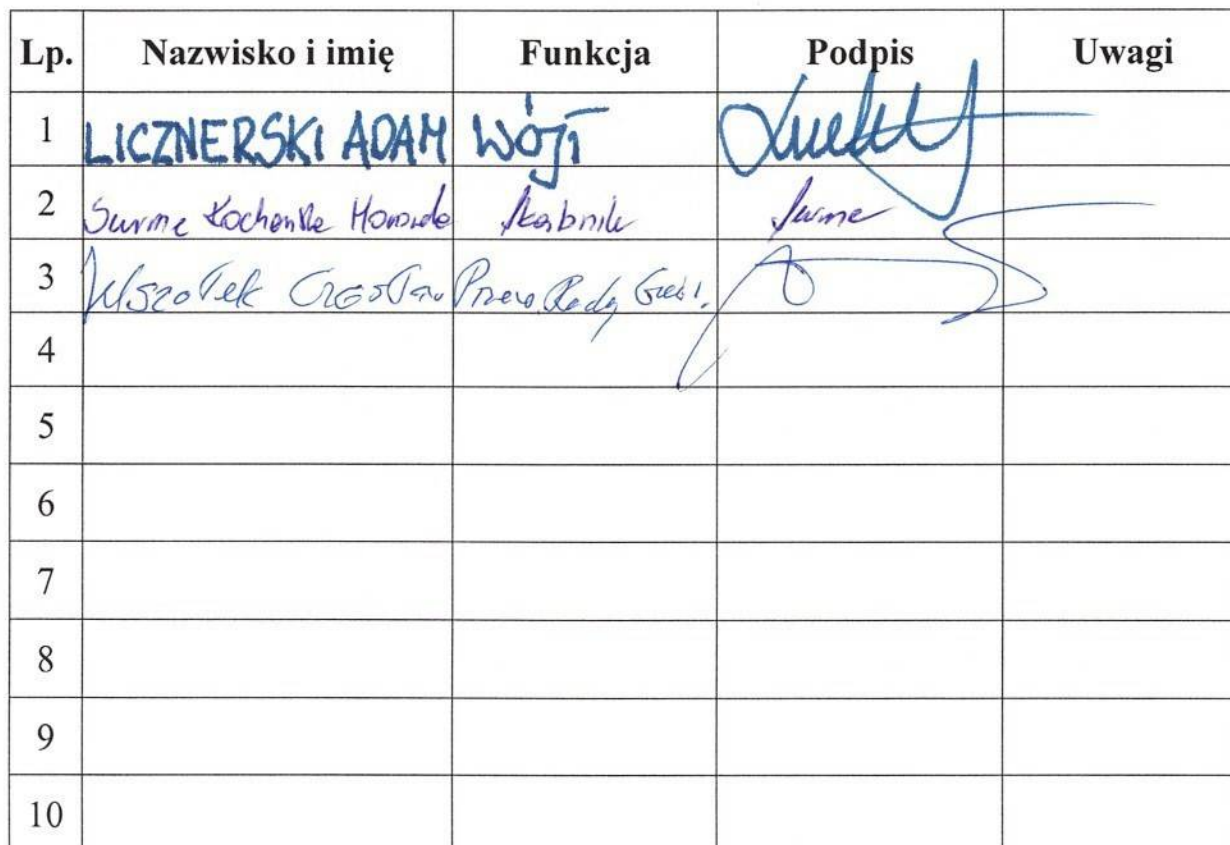 Lp. Nazwisko i imię Funkcja Podpis Uwagi
1 LICZNERSKI ADAM WÓJT
2 Surma Kochanska Skarbnik Surma
3 Wszołek Czesław Przew. Rady
4
5
6
7
8
9
10